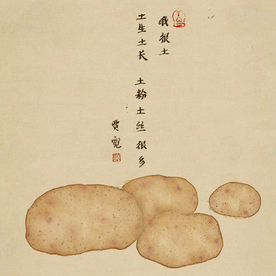 我很土
土生土长 土粉土丝很多
贾宽